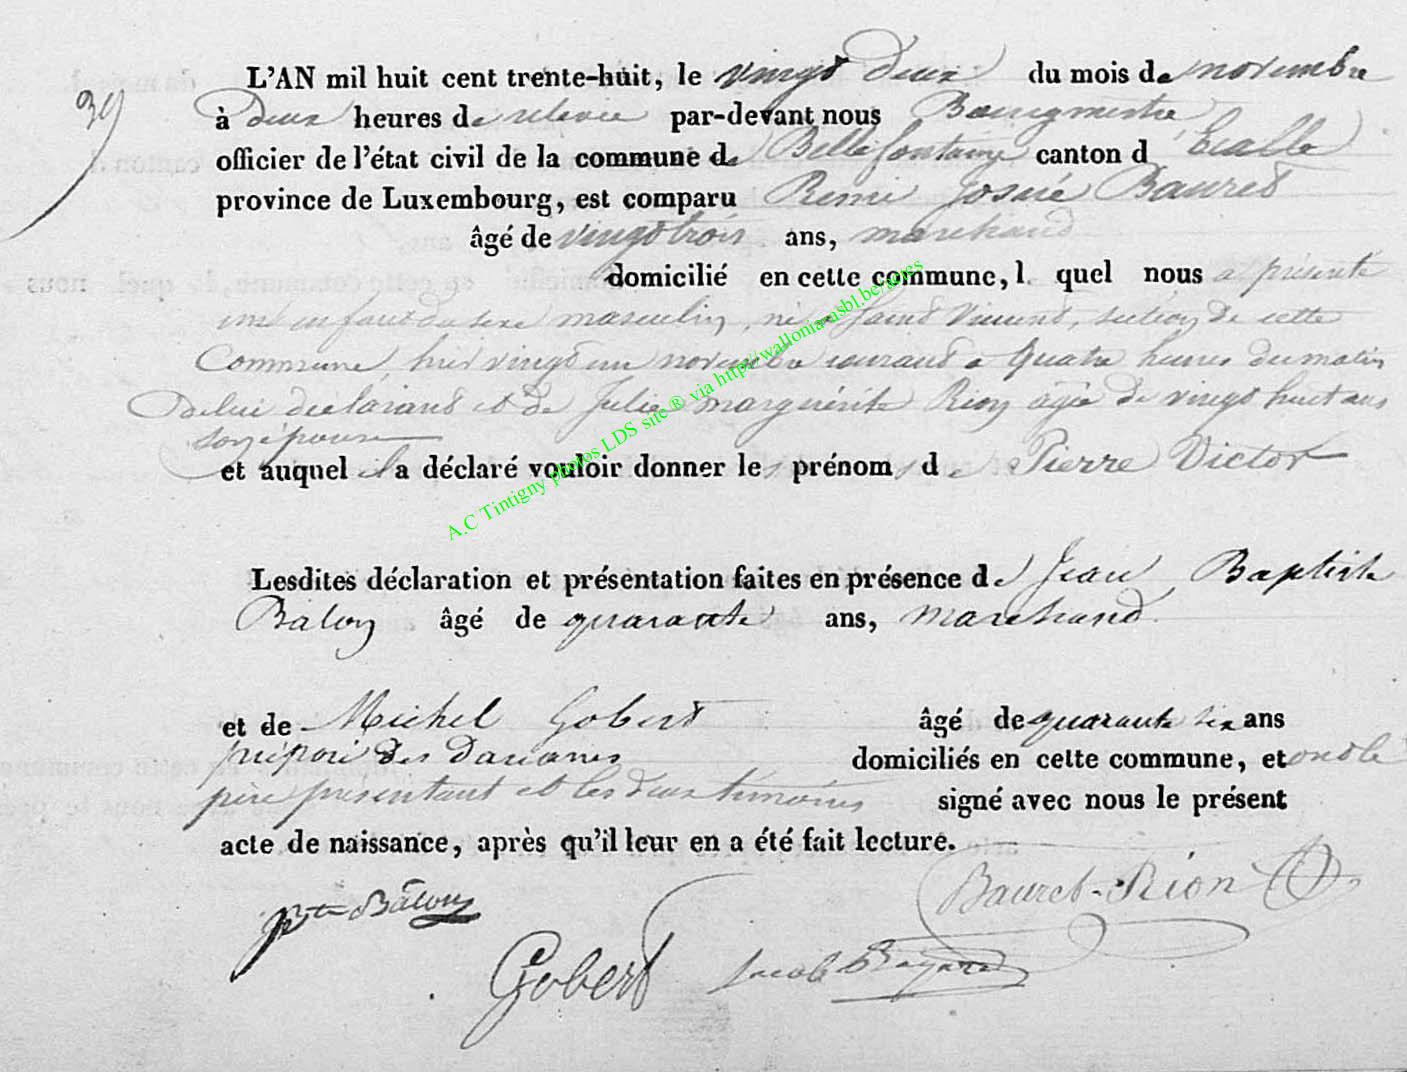 39
L'AN mil huit cent trente-huit, le vingt deux du mois de novembre
à deux heures de relevée par-devant nous Bourgmestre
officier de l'état civil de la commune de Bellefontaine canton d'Etalle
province de Luxembourg, est comparu Remi Josué Bauret
âgé de vingt trois ans, marchand
domicilié en cette commune, l quel nous a présenté
un enfant du sexe masculin, né a Saint Vincent, section de cette
Commune, hier vingt un novembre courant a quatre heures du matin
de lui déclarant et de Julie Marguérite Rion agée de vingt huit ans
son épouse
et auquel il a déclaré vouloir donner les prénoms de Pierre Victor
Lesdites déclaration et présentation faites en présence de Jean Baptiste
Balon âgé de quarante ans, marchand
et de Michel Gobert âgé de quarante six ans
préposé des Douanes domiciliés en cette commune, et ont le
père présentant et les deux témoins signé avec nous le présent
acte de naissance, après qu'il leur en a été fait lecture.
Bauret-Rion
Jbte Bâlon
Gobert Jacob
A.C Tintigny photos LDS site ® via http://wallonia-asbl.be/actes